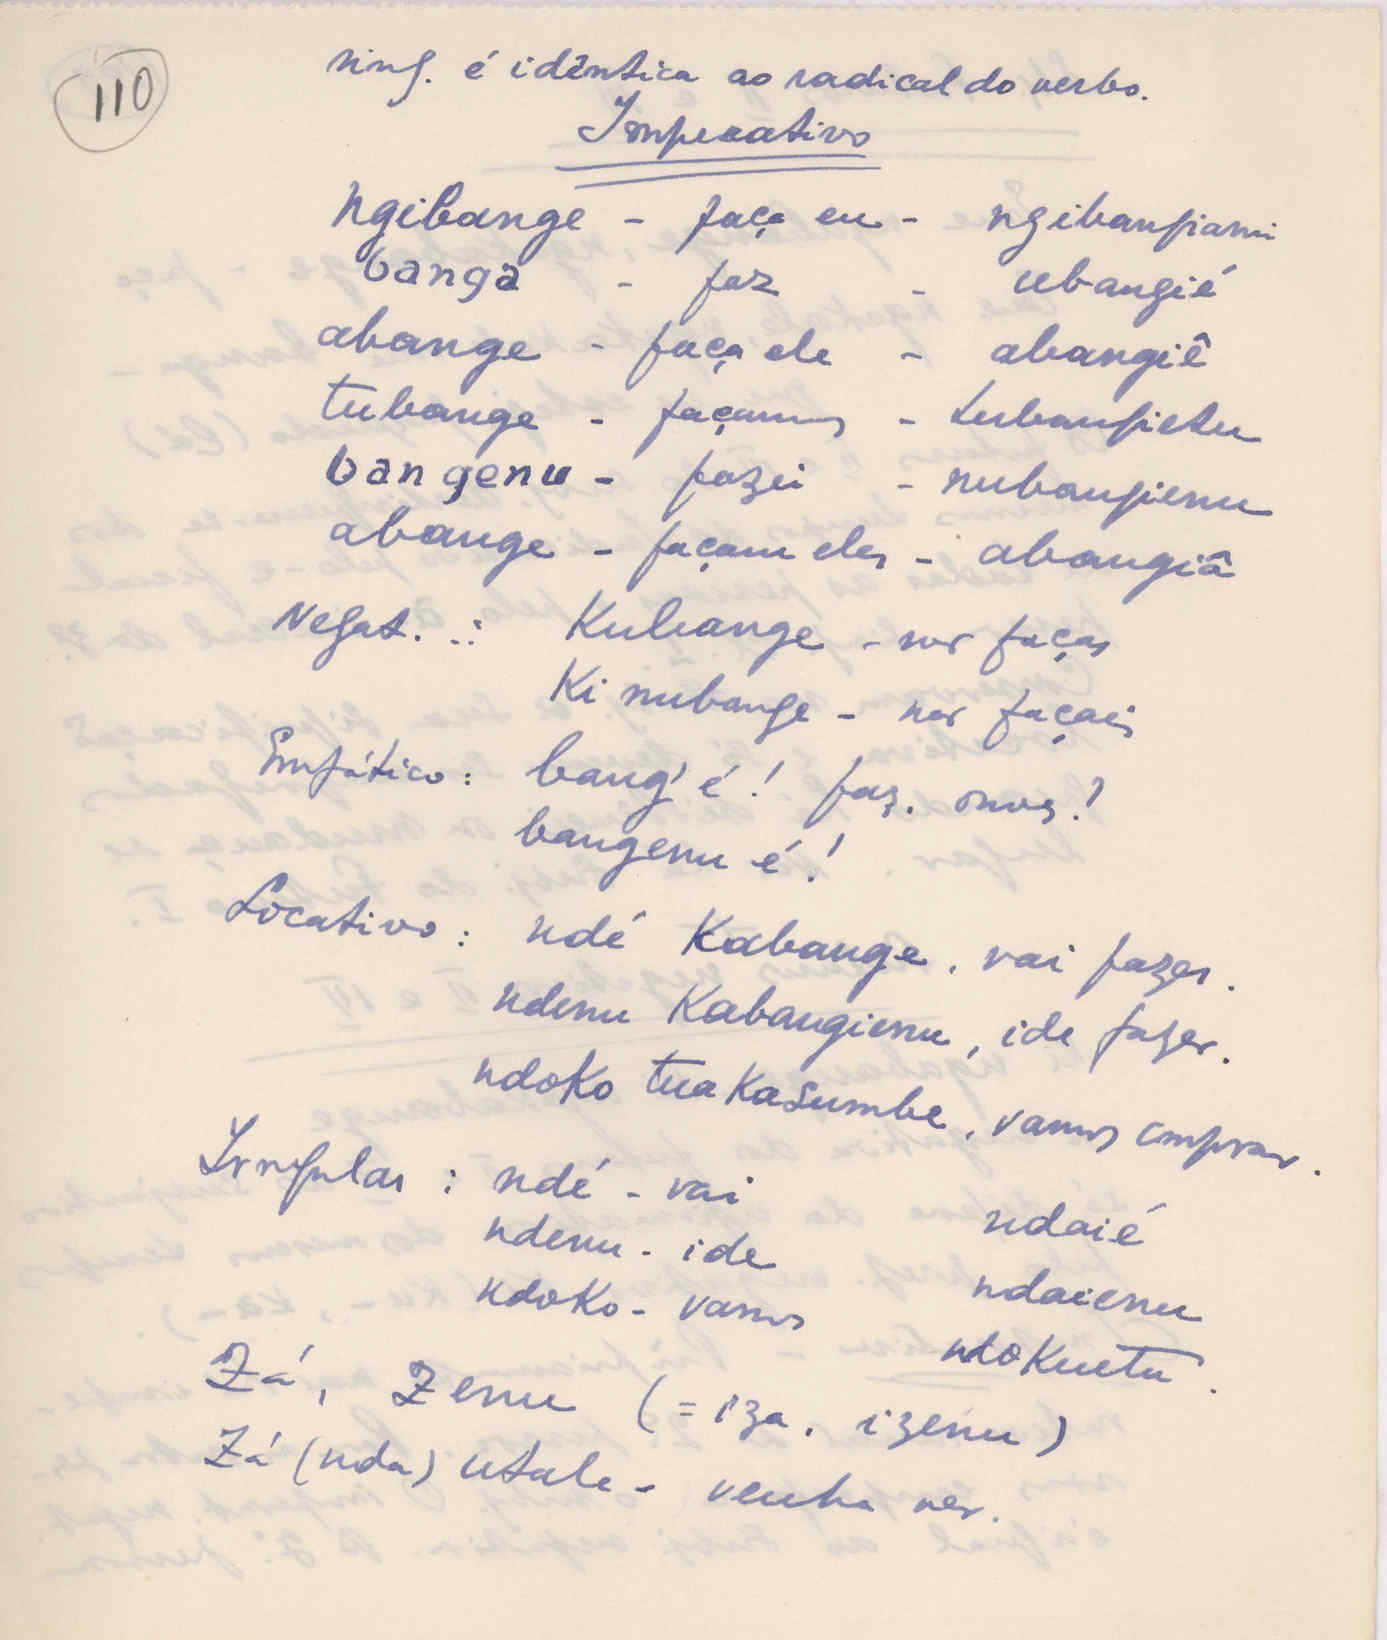 110
sing. é idêntica ao radical do verbo.
Imperativo
Ngibange - faça eu - ngibangiami
banga - faz - ubangié
abange - faça ele - abangiê
tubange - façamos - tubangietu
bangenu - fazei - nubangienu
abange - façam eles - abangiâ
Negat. : Kubange - não faças
Ki nubange - não façais
Enfático : bang'é! faz.
bangenu é!
Locativo : ndé Kabange, vai fazer.
ndenu Kabangienu, ide fazer.
ndoko tuakasumbe, vamos comprar.
Irregular : ndé - vai ndaié
ndenu - ide ndaienu
ndoko - vamos ndokuetu.
Zá, Zenu (= iza, izenu)
Zá (nda) utale - venha ver.